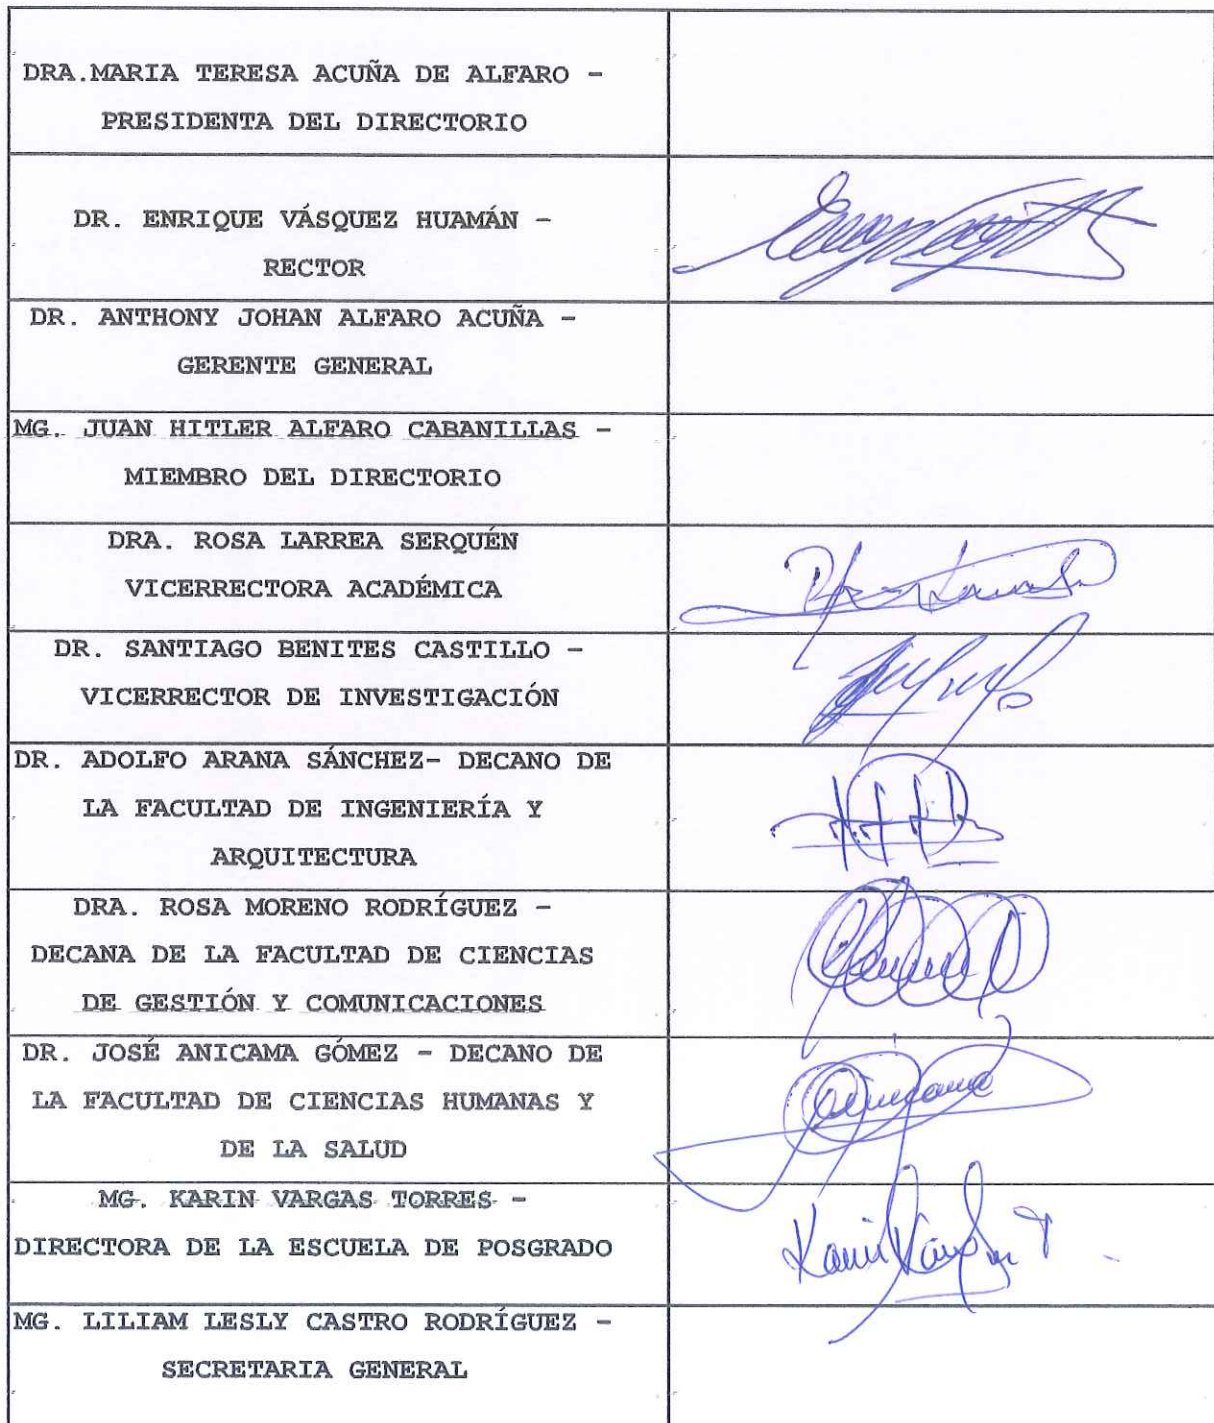 DRA.MARIA TERESA ACUÑA DE ALFARO -
PRESIDENTA DEL DIRECTORIO
DR. ENRIQUE VÁSQUEZ HUAMÁN -
RECTOR
DR. ANTHONY JOHAN ALFARO ACUÑA -
GERENTE GENERAL
MG. JUAN HITLER ALFARO CABANILLAS -
MIEMBRO DEL DIRECTORIO
DRA. ROSA LARREA SERQUÉN
VICERRECTORA ACADÉMICA
DR. SANTIAGO BENITES CASTILLO -
VICERRECTOR DE INVESTIGACIÓN
DR. ADOLFO ARANA SÁNCHEZ- DECANO DE
LA FACULTAD DE INGENIERÍA Y
ARQUITECTURA
DRA. ROSA MORENO RODRÍGUEZ -
DECANA DE LA FACULTAD DE CIENCIAS
DE GESTIÓN Y COMUNICACIONES
DR. JOSÉ ANICAMA GÓMEZ - DECANO DE
LA FACULTAD DE CIENCIAS HUMANAS Y
DE LA SALUD
MG. KARIN VARGAS TORRES -
DIRECTORA DE LA ESCUELA DE POSGRADO
MG. LILIAM LESLY CASTRO RODRÍGUEZ -
SECRETARIA GENERAL